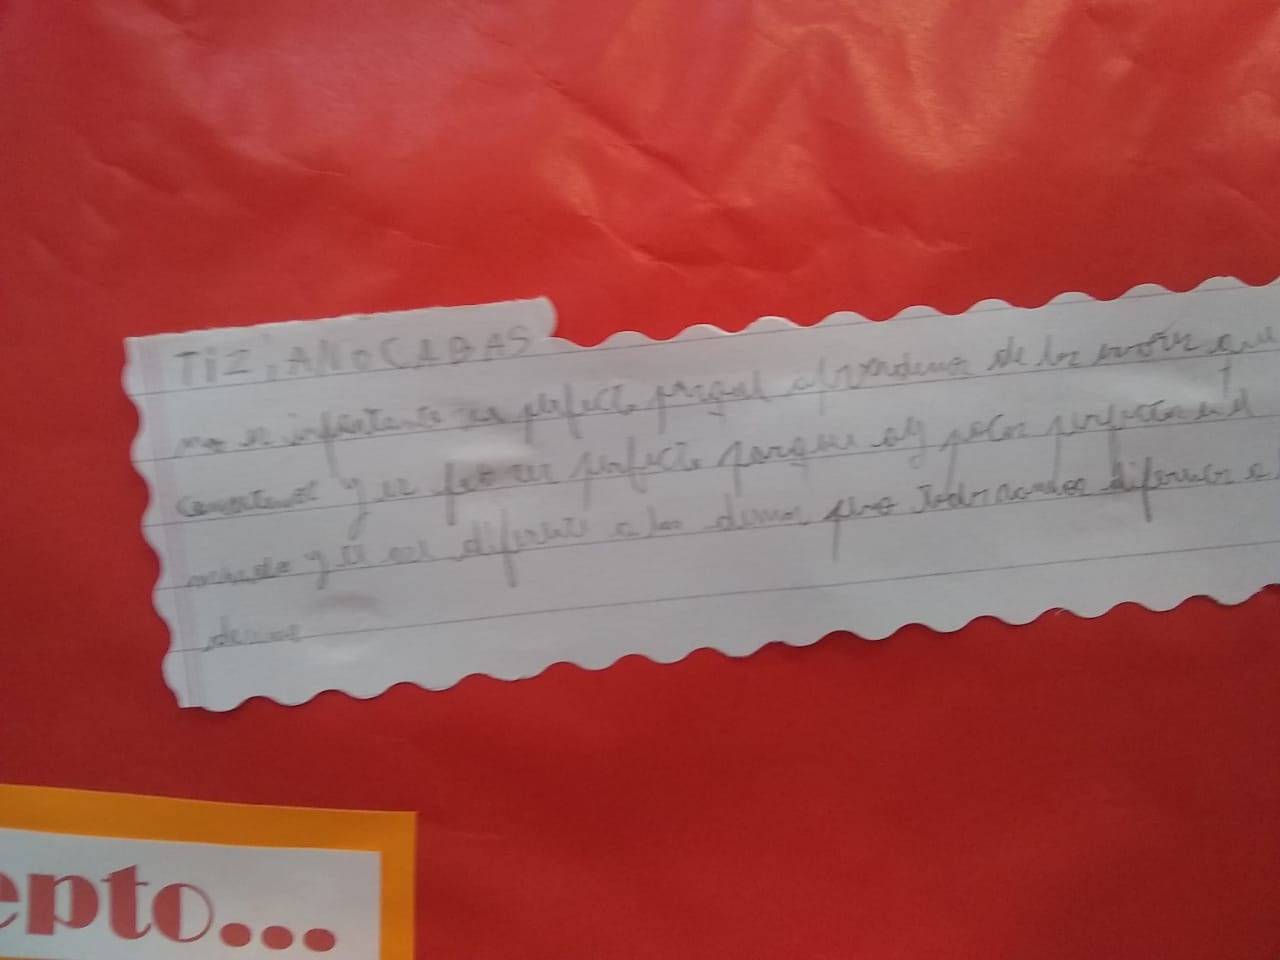 TiZiANO CABAS
no es importante ser perfecto porque aprendemos de los errores que
cometemos y es feo ser perfecto porque ay pocos perfectos en el
mundo y es ser diferente a los demas pero todos somos diferentes a
demas
epto...